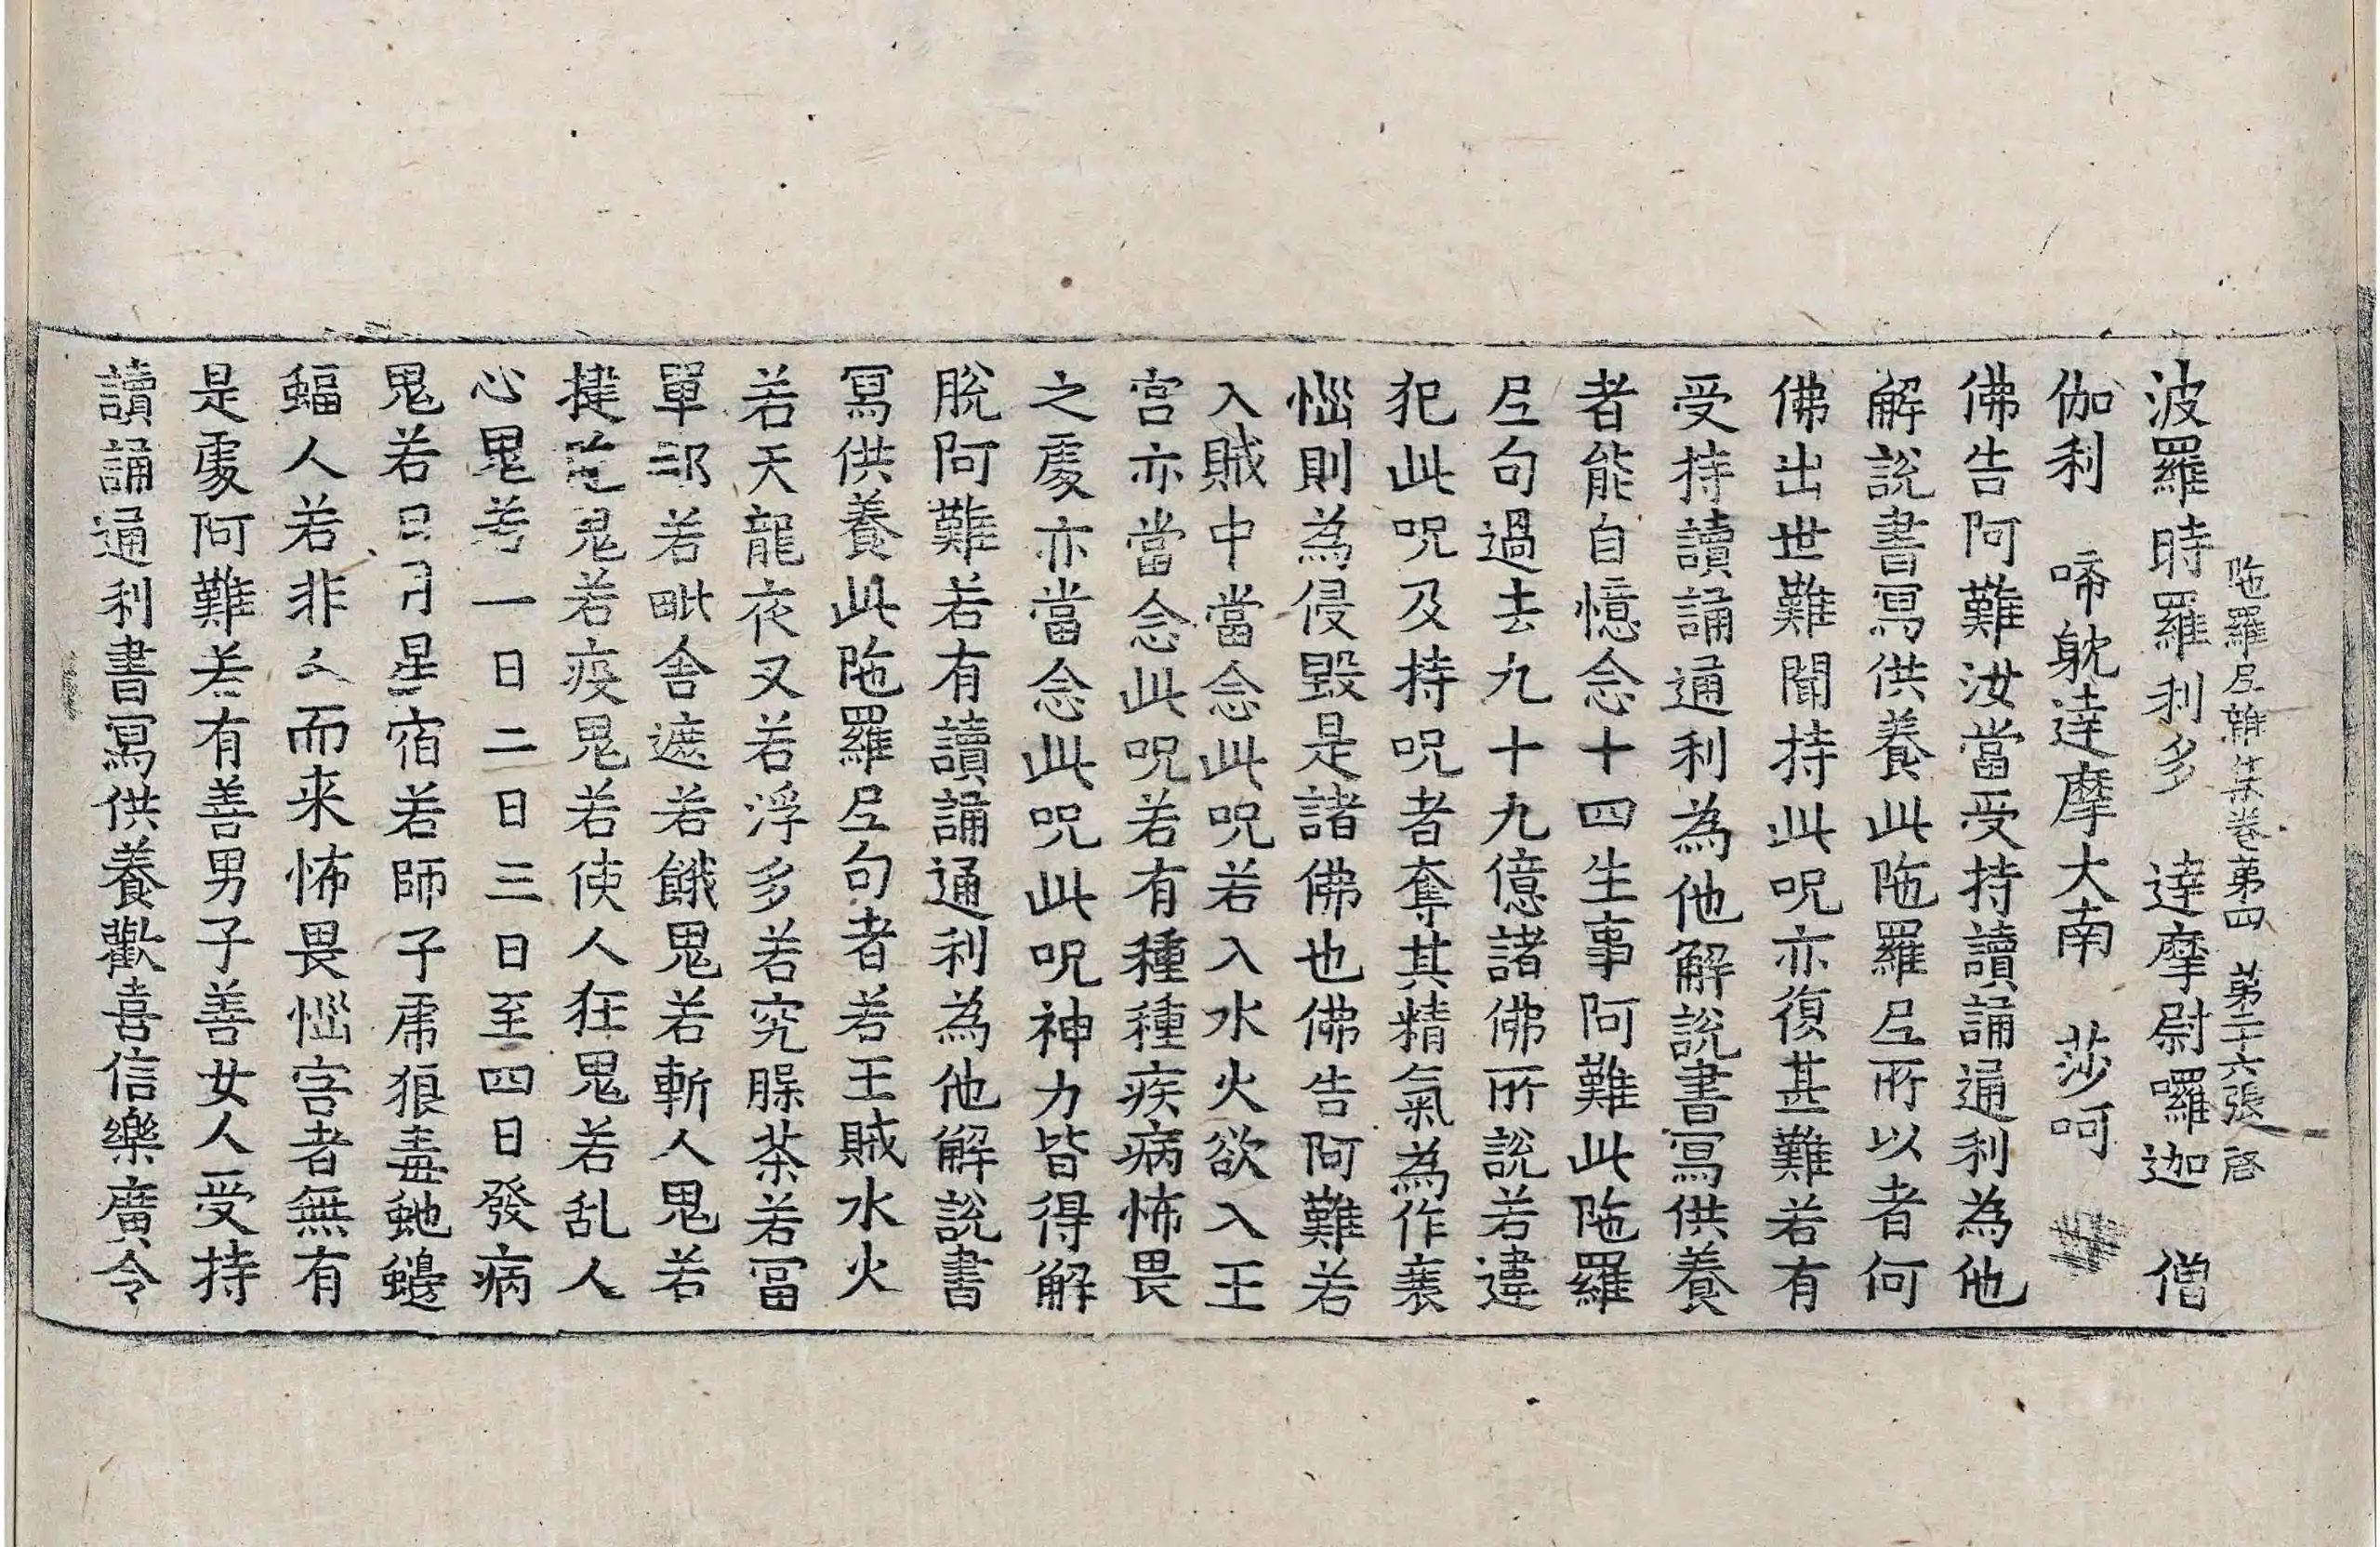 陁羅尼雜集卷第四 第二十六張 啓
波羅時羅利多 達摩尉囉迦 僧
伽利 啼躭達摩大南 莎呵
佛告阿難汝當受持讀誦通利為他
解說書寫供養此陁羅尼所以者何
佛出世難聞持此呪亦復甚難若有
受持讀誦通利為他解說書寫供養
者能自憶念十四生事阿難此陁羅
尼句過去九十九億諸佛所說若違
犯此呪及持呪者奪其精氣為作衰
惱則為侵毀是諸佛也佛告阿難若
入賊中當念此呪若入水火欲入王
宫亦當念此呪若有種種疾病怖畏
之處亦當念此呪此呪神力皆得解
脫阿難若有讀誦通利為他解說書
寫供養此陁羅尼句者若王賊水火
若天龍夜叉若浮多若究腂茶若冨
單那若毗舍遮若餓鬼若斬人鬼若
揵陁鬼若疫鬼若使人狂鬼若乱人
心鬼若一日二日三日至四日發病
鬼若日月星宿若師子虎狼毒虵蠍
蝠人若非人而来怖畏惱害者無有
是處阿難若有善男子善女人受持
讀誦通利書寫供養歡喜信樂廣令